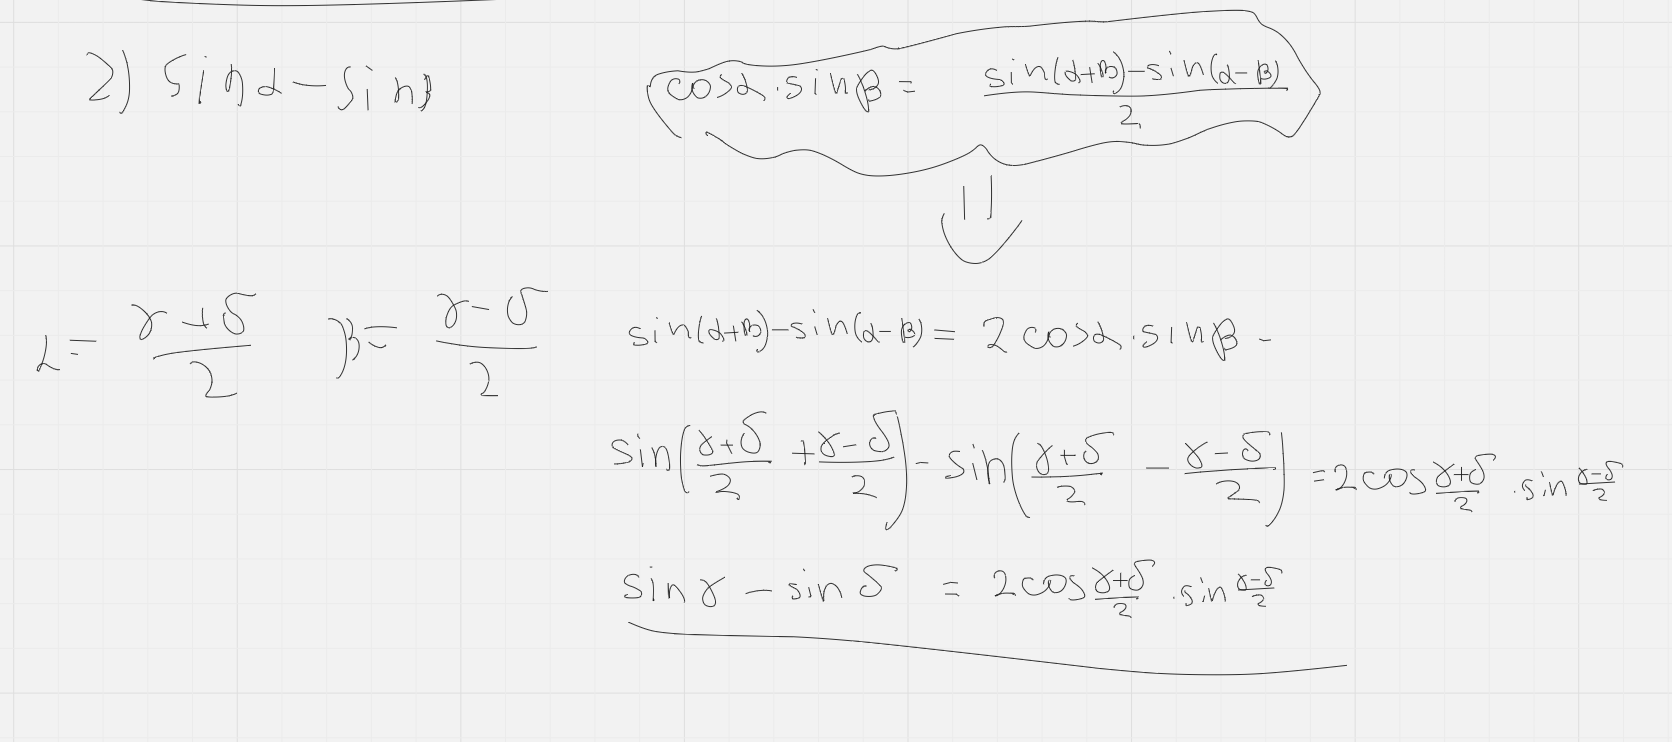 2) sinα - sinβ
cosα · sinβ = (sin(α+β) - sin(α-β))/2
⇓
α = (γ+δ)/2 β = (γ-δ)/2
sin(α+β) - sin(α-β) = 2 cosα · sinβ -
sin((γ+δ)/2 + (γ-δ)/2) - sin((γ+δ)/2 - (γ-δ)/2) = 2 cos (γ+δ)/2 · sin (γ-δ)/2
sinγ - sinδ = 2 cos (γ+δ)/2 · sin (γ-δ)/2